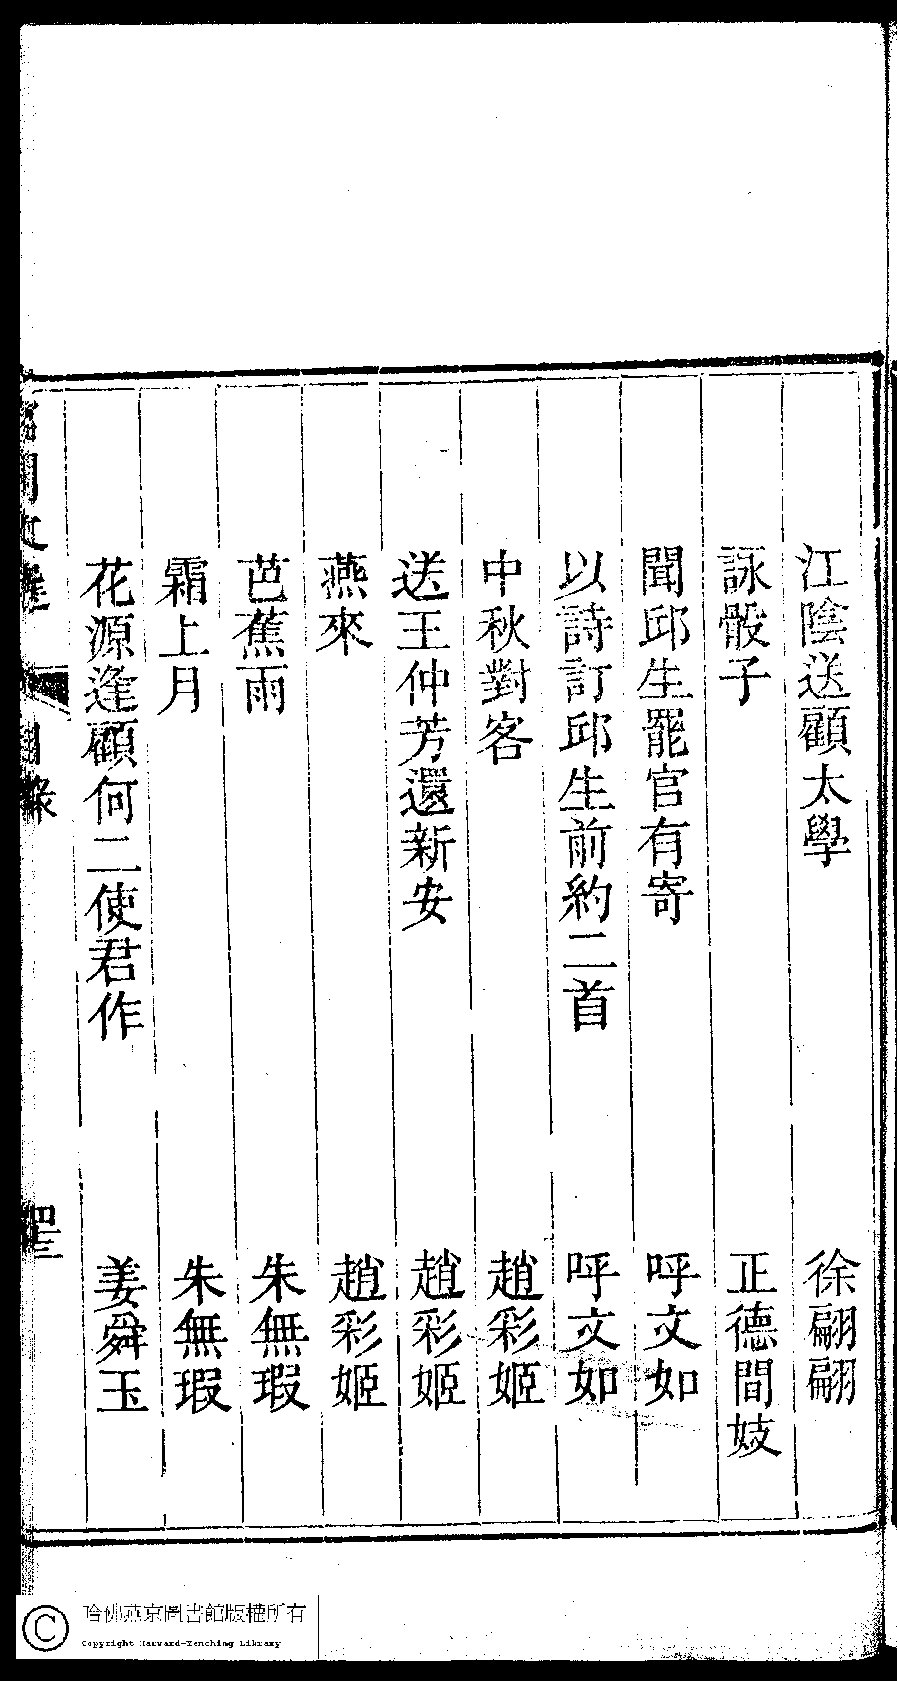 江陰送顧太學　徐翩翩
詠骰子　正德間妓
聞邱生罷官有寄　呼文如
以詩訂邱生前約二首　呼文如
中秋對客　趙彩姬
送王仲芳還新安　趙彩姬
燕來　趙彩姬
芭蕉雨　朱無瑕
霜上月　朱無瑕
花源逢顧何二使君作　姜舜玉
目錄
哈佛燕京圖書館版權所有
Copyright Harvard-Yenching Library